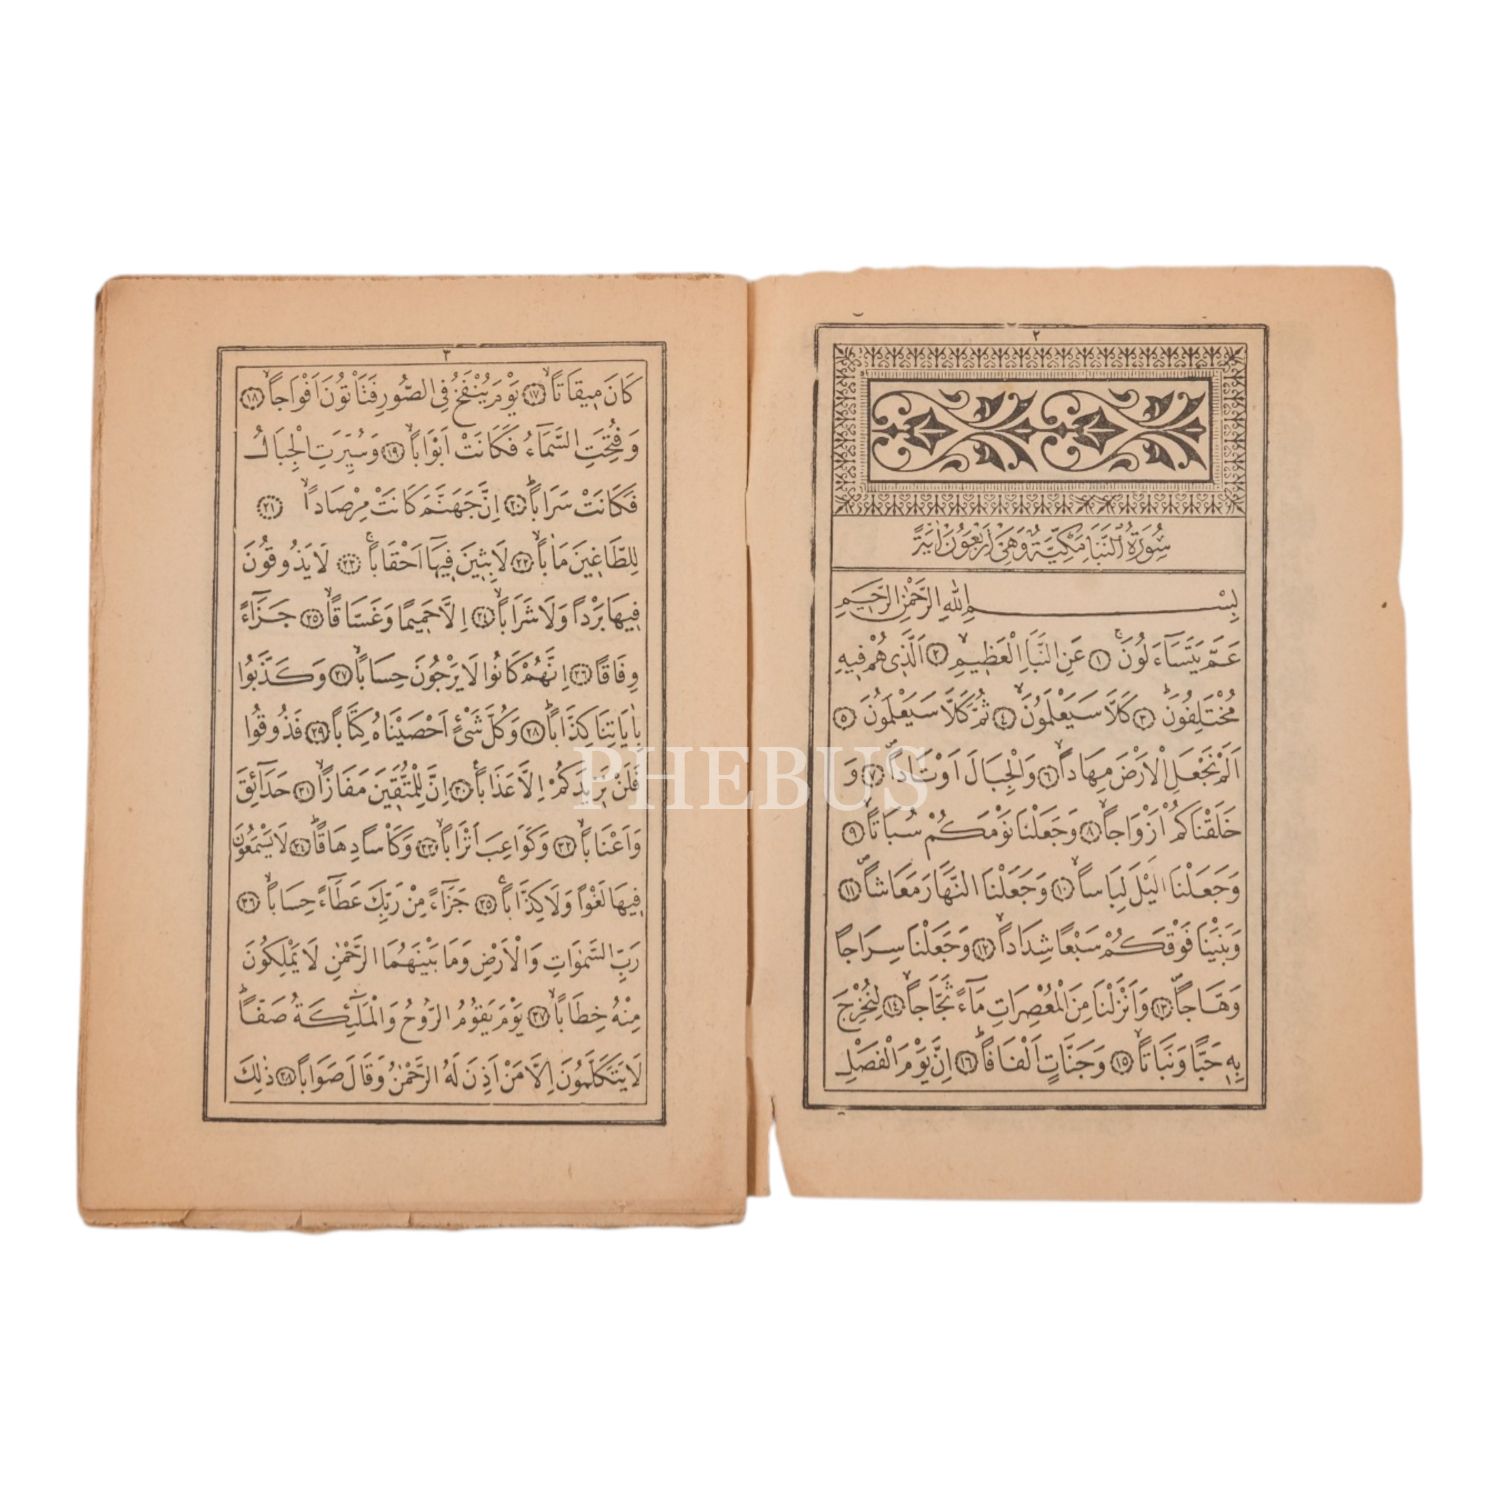 ٢
سُورَةُ النَّبَأِ مَكِّيَّةٌ وَهِيَ اَرْبَعُونَ اٰيَةً
بِسْمِ اللّٰهِ الرَّحْمٰنِ الرَّحِيمِ
عَمَّ يَتَسَآءَلُونَۚ ﴿١﴾ عَنِ النَّبَأِ الْعَظِيمِۙ ﴿٢﴾ اَلَّذِى هُمْ فِيهِ
مُخْتَلِفُونَۜ ﴿٣﴾ كَلَّا سَيَعْلَمُونَۙ ﴿٤﴾ ثُمَّ كَلَّا سَيَعْلَمُونَ ﴿٥﴾
اَلَمْ نَجْعَلِ الْاَرْضَ مِهَادًاۙ ﴿٦﴾ وَالْجِبَالَ اَوْتَادًاۖ ﴿٧﴾ وَ
خَلَقْنَاكُمْ اَزْوَاجًاۙ ﴿٨﴾ وَجَعَلْنَا نَوْمَكُمْ سُبَاتًاۙ ﴿٩﴾
وَجَعَلْنَا الَّيْلَ لِبَاسًاۙ ﴿١٠﴾ وَجَعَلْنَا النَّهَارَ مَعَاشًاۖ ﴿١١﴾
وَبَنَيْنَا فَوْقَكُمْ سَبْعًا شِدَادًاۙ ﴿١٢﴾ وَجَعَلْنَا سِرَاجًا
وَهَّاجًاۖ ﴿١٣﴾ وَاَنْزَلْنَا مِنَ الْمُعْصِرَاتِ مَآءً ثَجَّاجًاۙ ﴿١٤﴾ لِنُخْرِجَ
بِهِ حَبًّا وَنَبَاتًاۙ ﴿١٥﴾ وَجَنَّاتٍ اَلْفَافًاۜ ﴿١٦﴾ اِنَّ يَوْمَ الْفَصْلِ
٣
كَانَ مِيقَاتًاۙ ﴿١٧﴾ يَوْمَ يُنْفَخُ فِى الصُّورِ فَتَأْتُونَ اَفْوَاجًاۙ ﴿١٨﴾
وَفُتِحَتِ السَّمَآءُ فَكَانَتْ اَبْوَابًاۙ ﴿١٩﴾ وَسُيِّرَتِ الْجِبَالُ
فَكَانَتْ سَرَابًاۜ ﴿٢٠﴾ اِنَّ جَهَنَّمَ كَانَتْ مِرْصَادًاۙ ﴿٢١﴾
لِلطَّاغِينَ مَاٰبًاۙ ﴿٢٢﴾ لَابِثِينَ فِيهَآ اَحْقَابًاۚ ﴿٢٣﴾ لَا يَذُوقُونَ
فِيهَا بَرْدًا وَلَا شَرَابًاۙ ﴿٢٤﴾ اِلَّا حَمِيمًا وَغَسَّاقًاۙ ﴿٢٥﴾ جَزَآءً
وِفَاقًا ﴿٢٦﴾ اِنَّهُمْ كَانُوا لَا يَرْجُونَ حِسَابًاۙ ﴿٢٧﴾ وَكَذَّبُوا
بِاٰيَاتِنَا كِذَّابًاۜ ﴿٢٨﴾ وَكُلَّ شَىْءٍ اَحْصَيْنَاهُ كِتَابًاۙ ﴿٢٩﴾ فَذُوقُوا
فَلَنْ نَزِيدَكُمْ اِلَّا عَذَابًا۟ ﴿٣٠﴾ اِنَّ لِلْمُتَّقِينَ مَفَازًاۙ ﴿٣١﴾ حَدَآئِقَ
وَاَعْنَابًاۙ ﴿٣٢﴾ وَكَوَاعِبَ اَتْرَابًاۙ ﴿٣٣﴾ وَكَأْسًا دِهَاقًاۜ ﴿٣٤﴾ لَا يَسْمَعُونَ
فِيهَا لَغْوًا وَلَا كِذَّابًاۚ ﴿٣٥﴾ جَزَآءً مِنْ رَبِّكَ عَطَآءً حِسَابًاۙ ﴿٣٦﴾
رَبِّ السَّمٰوَاتِ وَالْاَرْضِ وَمَا بَيْنَهُمَا الرَّحْمٰنِ لَا يَمْلِكُونَ
مِنْهُ خِطَابًاۙ ﴿٣٧﴾ يَوْمَ يَقُومُ الرُّوحُ وَالْمَلٰٓئِكَةُ صَفًّاۜ
لَا يَتَكَلَّمُونَ اِلَّا مَنْ اَذِنَ لَهُ الرَّحْمٰنُ وَقَالَ صَوَابًا ﴿٣٨﴾ ذٰلِكَ
PHEBUS